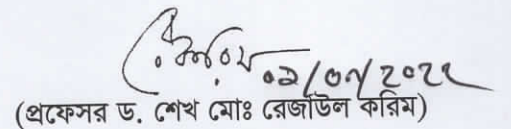 ০৯/০৩/২০২২
(প্রফেসর ড. শেখ মোঃ রেজাউল করিম)